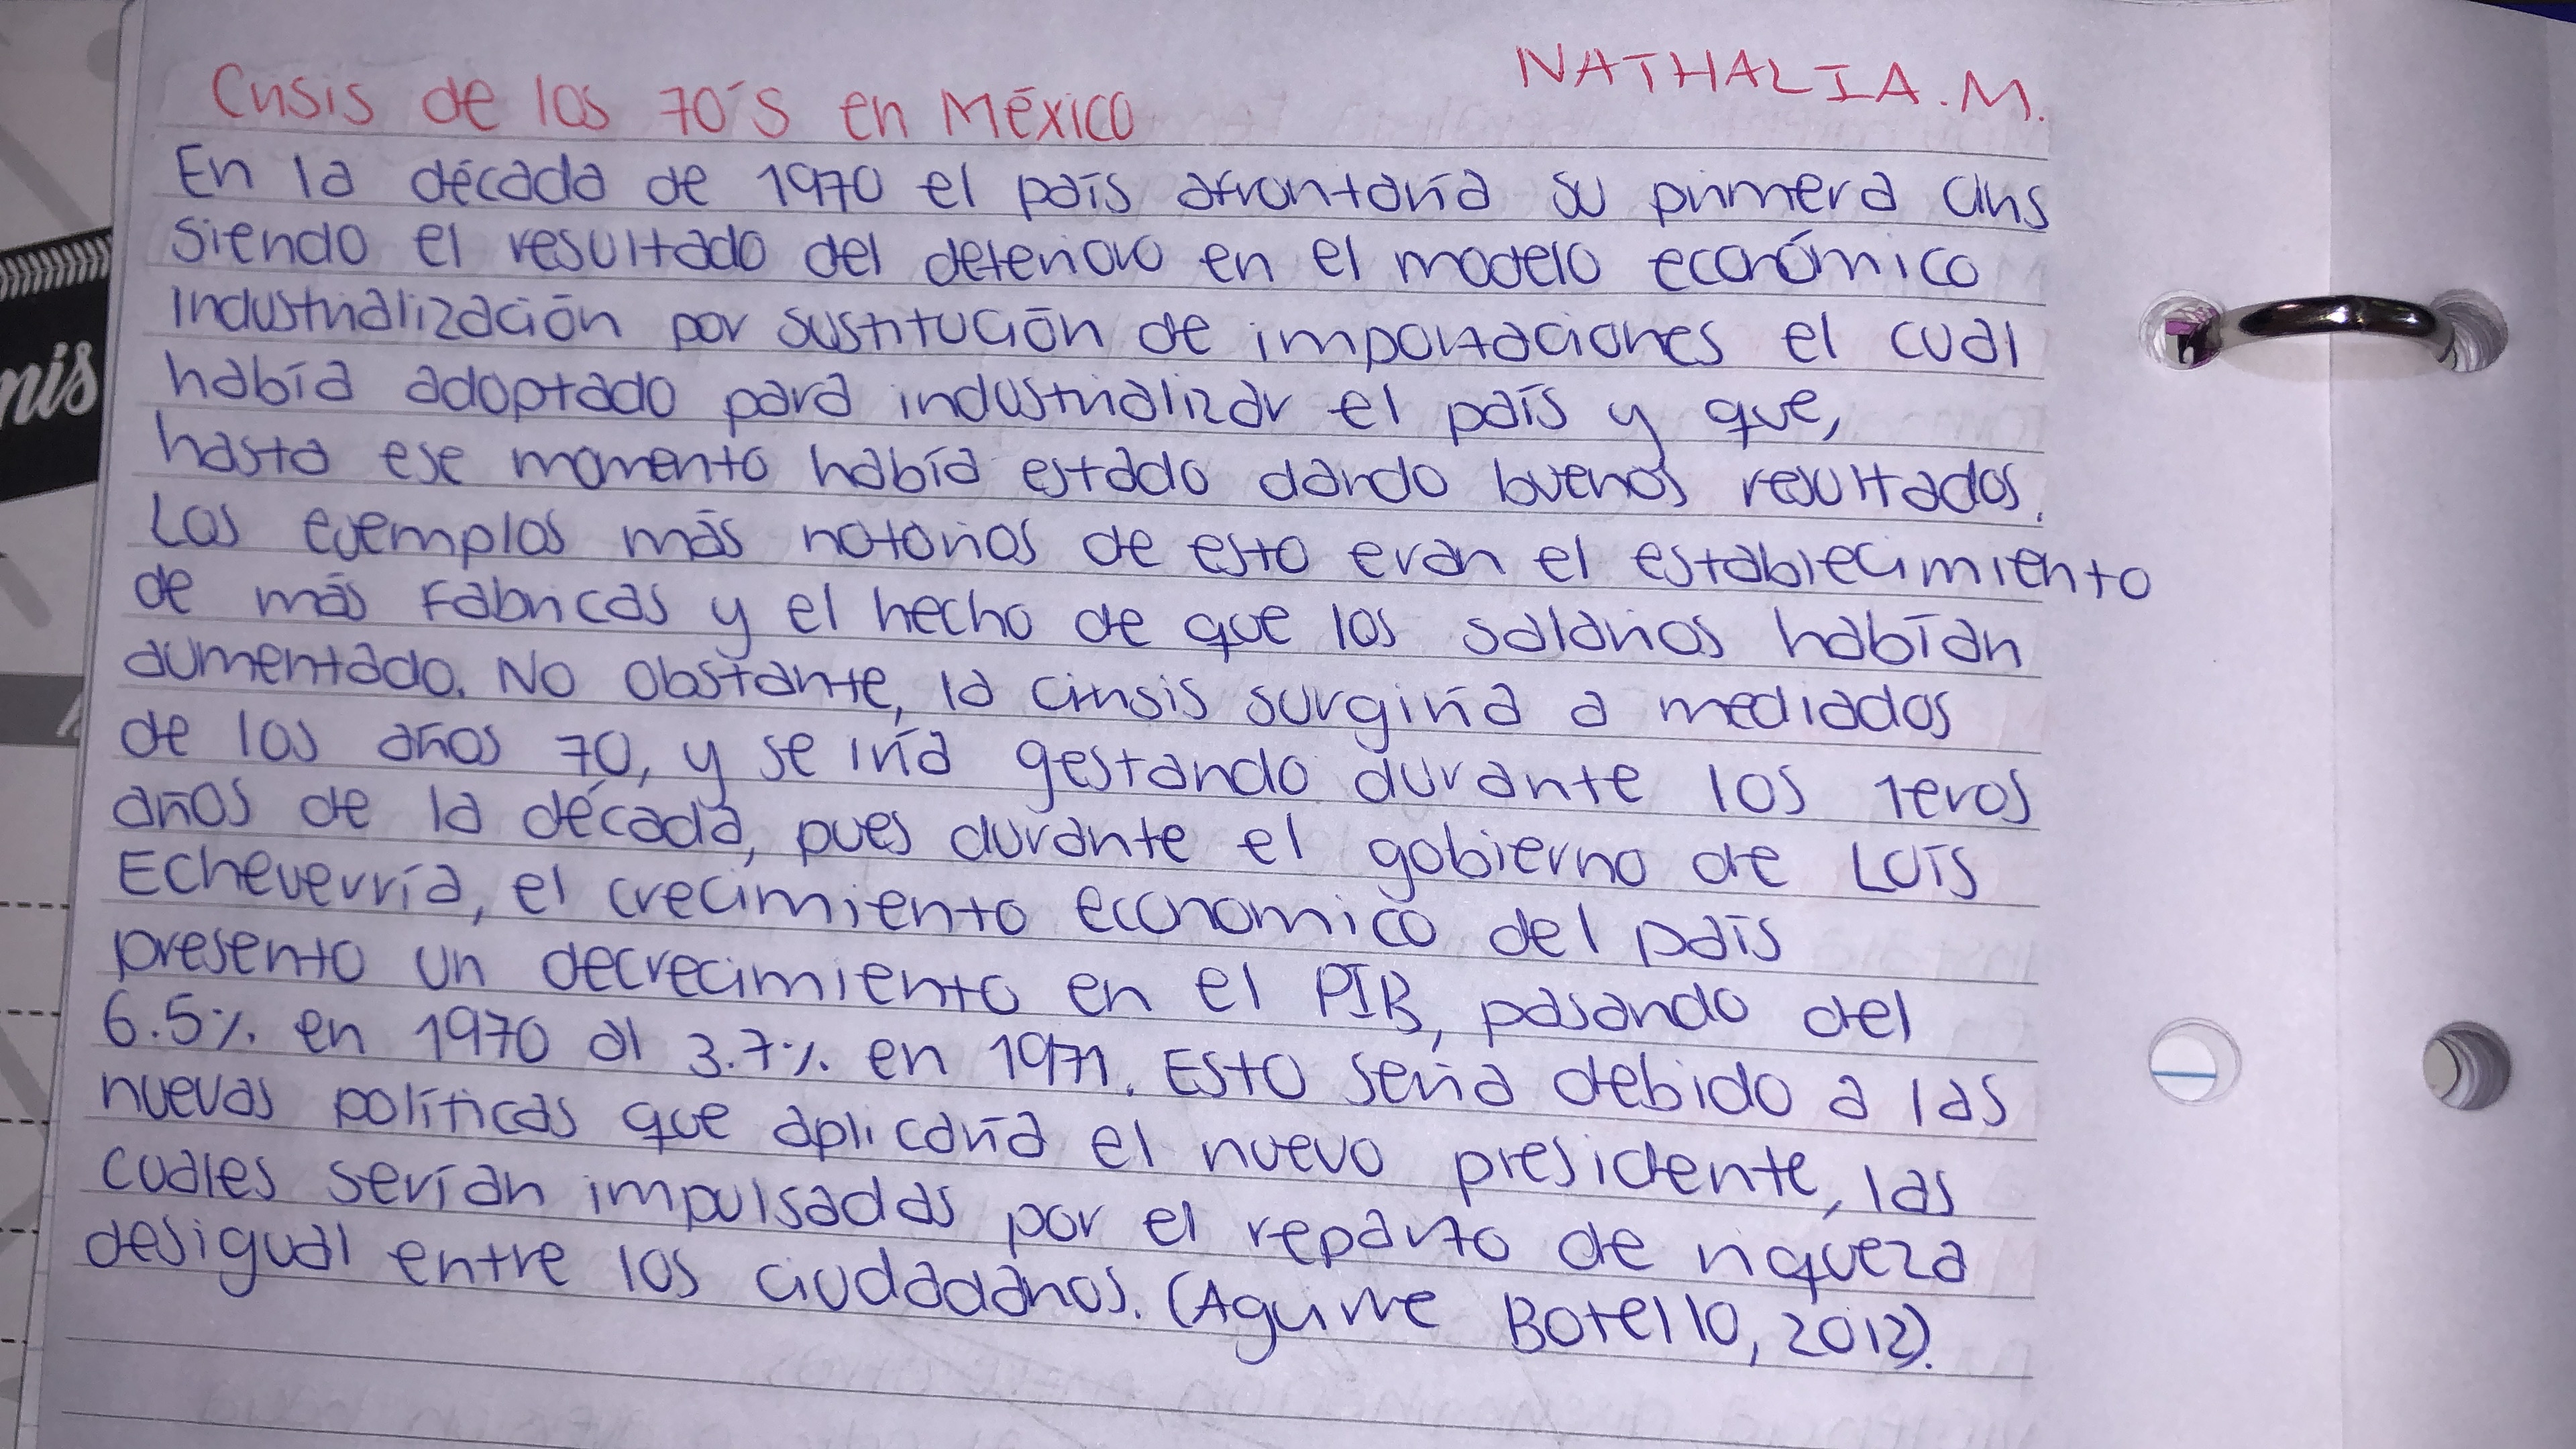 NATHALIA.M.
Crisis de los 70's en México
En la década de 1970 el país afrontaría su primera cris
siendo el resultado del deterioro en el modelo económico
industrialización por sustitución de importaciones el cual
había adoptado para industrializar el país y que,
hasta ese momento había estado dando buenos resultados.
Los ejemplos más notorios de esto eran el establecimiento
de más fábricas y el hecho de que los salarios habían
aumentado. No obstante, la crisis surgiría a mediados
de los años 70, y se iría gestando durante los 1eros
años de la década, pues durante el gobierno de Luis
Echeverría, el crecimiento economico del país
presento un decrecimiento en el PIB, pasando del
6.5% en 1970 al 3.7% en 1971. Esto sería debido a las
nuevas políticas que aplicaría el nuevo presidente, las
cuales serían impulsadas por el reparto de riqueza
desigual entre los ciudadanos. (Aguirre Botello, 2012).
nis